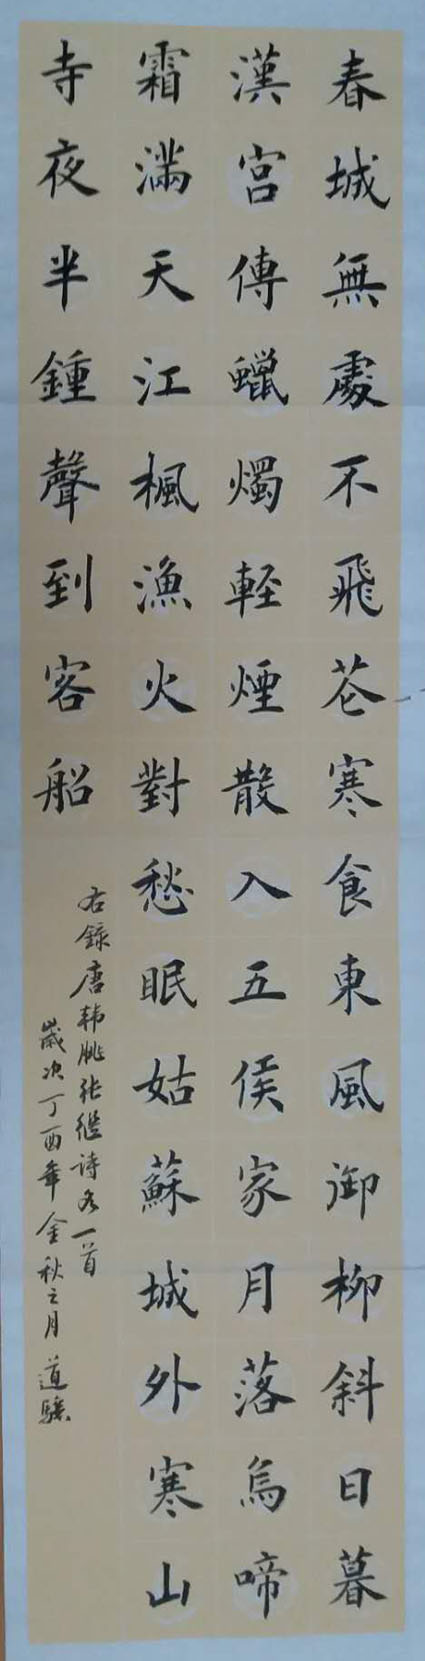 春城無處不飛花寒食東風御柳斜日暮
漢宮傳蠟燭輕煙散入五侯家月落烏啼
霜滿天江楓漁火對愁眠姑蘇城外寒山
寺夜半鍾聲到客船
右錄唐韩翃张继詩各一首
歲次丁酉年金秋之月 道驥